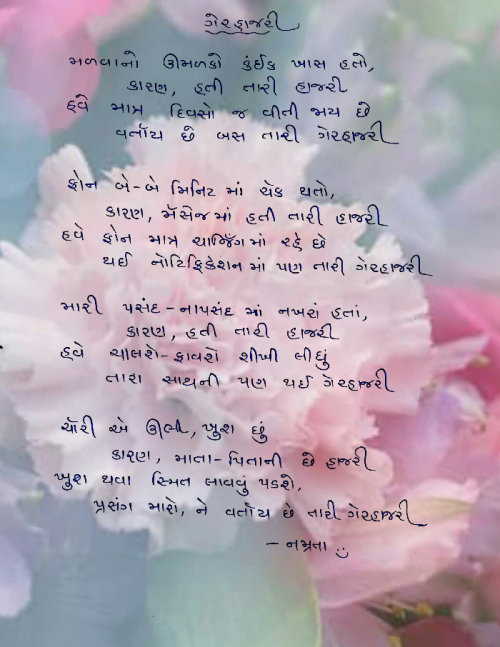 ગેરહાજરી
મળવાનો ઊમળકો કંઈક ખાસ હતો,
કારણ, હતી તારી હાજરી
હવે માત્ર દિવસો જ વીતી જાય છે
વર્તાય છે બસ તારી ગેરહાજરી
ફોન બે-બે મિનિટ માં ચેક થતો,
કારણ, મૅસેજ માં હતી તારી હાજરી
હવે ફોન માત્ર ચાર્જિંગ માં રહે છે
થઈ નોટિફિકેશન માં પણ તારી ગેરહાજરી
મારી પસંદ-નાપસંદ માં નખરાં હતાં,
કારણ, હતી તારી હાજરી
હવે ચાલશે-ફાવશે શીખી લીધું
તારા સાથની પણ થઈ ગેરહાજરી
ચૉરી એ ઊભી, ખુશ છું
કારણ, માતા-પિતાની છે હાજરી
ખુશ થવા સ્મિત લાવવું પડશે,
પ્રસંગ મારો, ને વર્તાય છે તારી ગેરહાજરી
- નમ્રતા